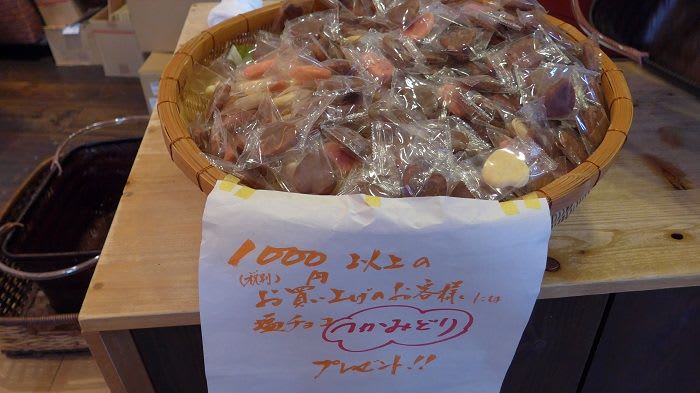 1000円以上の
(税別)
お買い上げのお客様には
塩チョコつかみどり
プレゼント!!